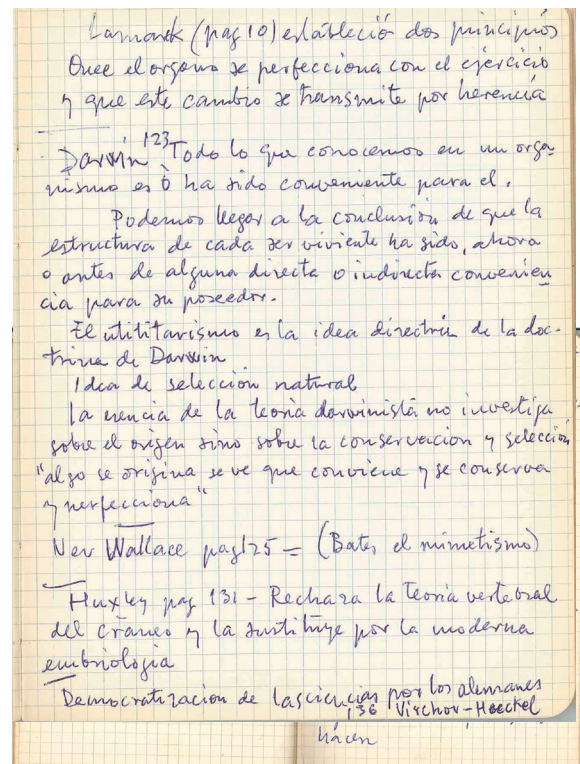 Lamarck (pag 10) estableció dos principios
Que el organo se perfecciona con el ejercicio
y que este cambio se transmite por herencia
Darwin 123 Todo lo que conocemos en un orga-
nismo es ó ha sido conveniente para el.
Podemos llegar a la conclusión de que la
estructura de cada ser viviente ha sido, ahora
o antes de alguna directa o indirecta convenien
cia para su poseedor.
El utilitarismo es la idea directriz de la doc-
trina de Darwin
Idea de selección natural
La esencia de la teoria darwinista no investiga
sobre el origen sino sobre la conservacion y selección
"algo se origina se ve que conviene y se conserva
y perfecciona"
Ver Wallace pag 125 = (Bates el mimetismo)
Huxley pag 131 - Rechaza la teoria vertebral
del craneo y la sustituye por la moderna
embriologia
Democratizacion de las ciencias por los alemanes
136 Virchov-Haeckel
hacen